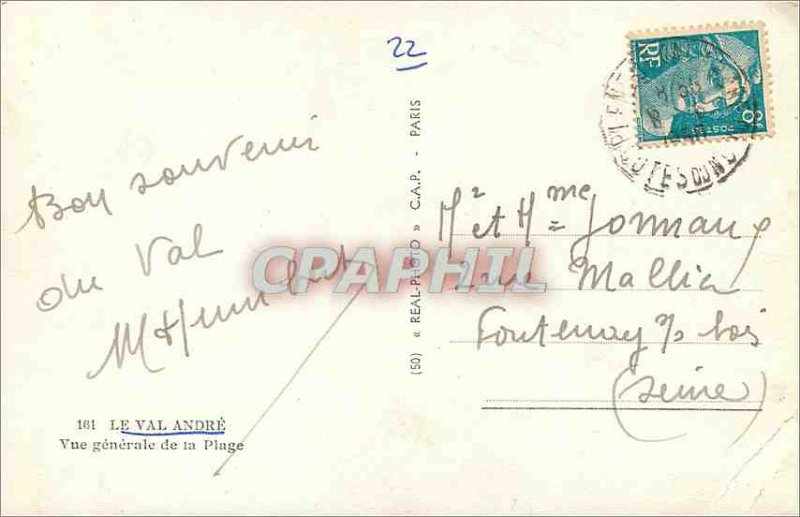 22
Bon souvenir
du Val
161 LE VAL ANDRÉ
Vue générale de la Plage
(50) « REAL-PHOTO » C.A.P. - PARIS
CPAPHIL
RF
8F
POSTES
CÔTES DU NORD
Mr et Mme
rue
Fontenay s/s bois
(Seine)